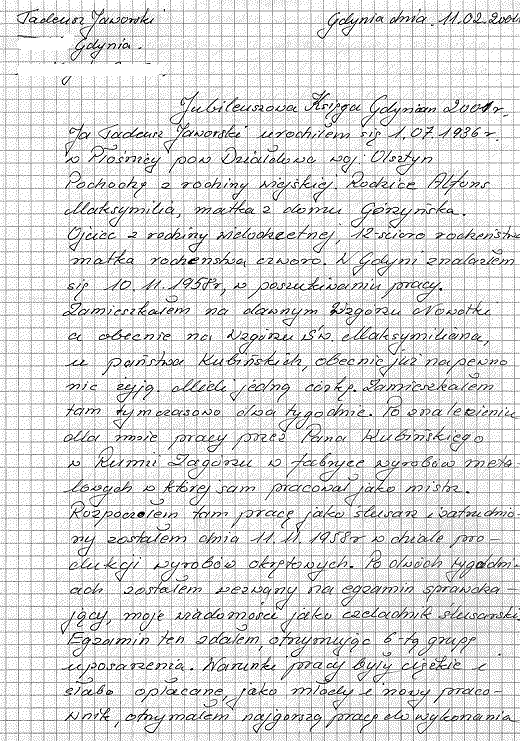 Tadeusz Jaworski Gdynia dnia. 11.02.2001
Gdynia.
Jubileuszowa Księga Gdynian 2001r.
Ja Tadeusz Jaworski urodziłem się 1.07.1936r.
w Płośnicy pow Działdowo woj. Olsztyn
Pochodzę z rodziny wiejskiej. Rodzice Alfons
Maksymilia, matka z domu Górzyńska.
Ojciec z rodziny wielodzietnej, 12-ścioro rodzeństwa
matka rodzeństwa czworo. W Gdyni znalazłem
się 10.11.1958r, w poszukiwaniu pracy.
Zamieszkałem na dawnym Wzgórzu Nowotki
a obecnie na Wzgórzu Św. Maksymiliana,
u państwa Kubińskich, obecnie już napewno
nie żyją. Mieli jedną córkę. Zamieszkałem
tam tymczasowo dwa tygodnie. Po znalezieniu
dla mnie pracy przez Pana Kubińskiego
w Rumii Zagórzu w fabryce wyrobów meta-
lowych w której sam pracował jako mistrz.
Rozpocząłem tam pracę jako ślusarz i zatrudnio-
ny zostałem dnia 11.11.1958r w dziale pro-
dukcji wyrobów okrętowych. Po dwóch tygodni-
ach zostałem wezwany na egzamin sprawdza-
jący, moje wiadomości jako czeladnik ślusarski.
Egzamin ten zdałem, otrzymując 6-tą grupę
uposarzenia. Warunki pracy były ciężkie i
słabo opłacane, jako młody i nowy praco-
wnik, otrzymałem najgorszą pracę do wykonania